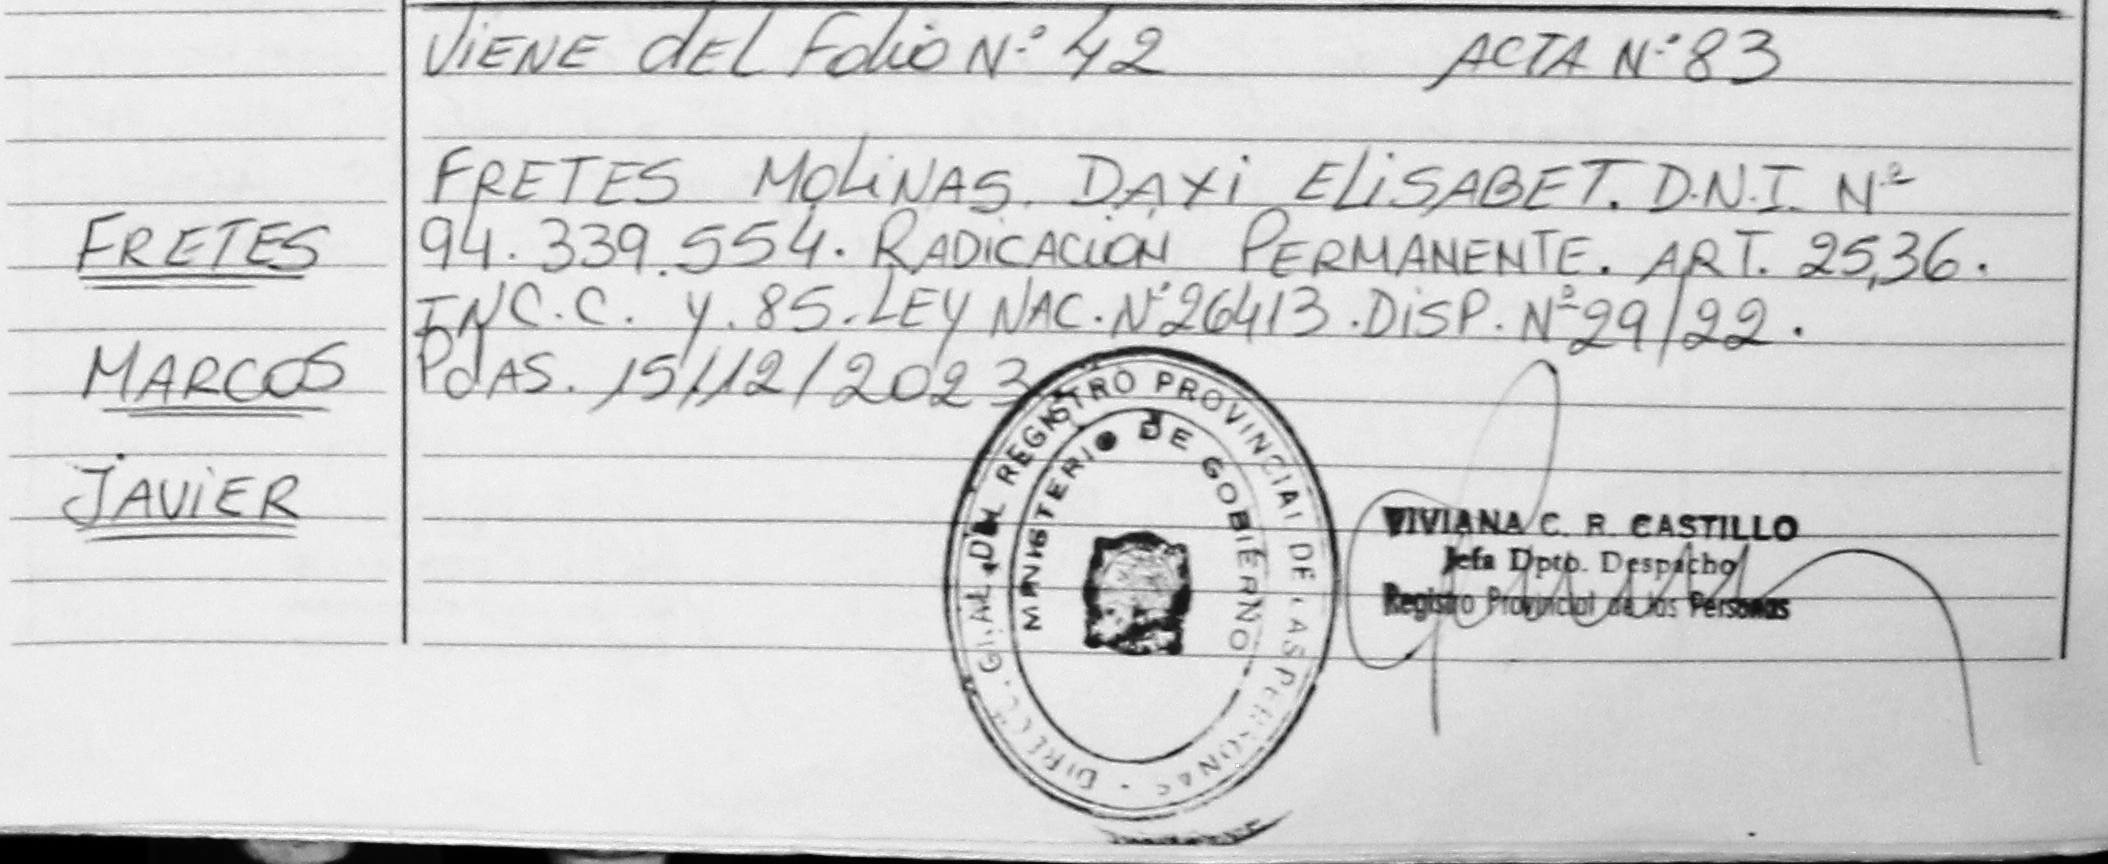 VIENE DEL Folio N.º 42 ACTA N.º 83
FRETES MOLINAS. DAXI ELISABET. D.N.I. Nº
94.339.554. RADICACION PERMANENTE. ART. 25,36.
INC. C. Y. 85. LEY NAC. Nº 26413. DISP. Nº 29/22.
PdAS. 15/12/2023
FRETES
MARCOS
JAVIER
DIRECC. GRAL. DEL REGISTRO PROVINCIAL DE LAS PERSONAS
MINISTERIO DE GOBIERNO
VIVIANA C. R. CASTILLO
Jefa Dpto. Despacho
Registro Provincial de las Personas